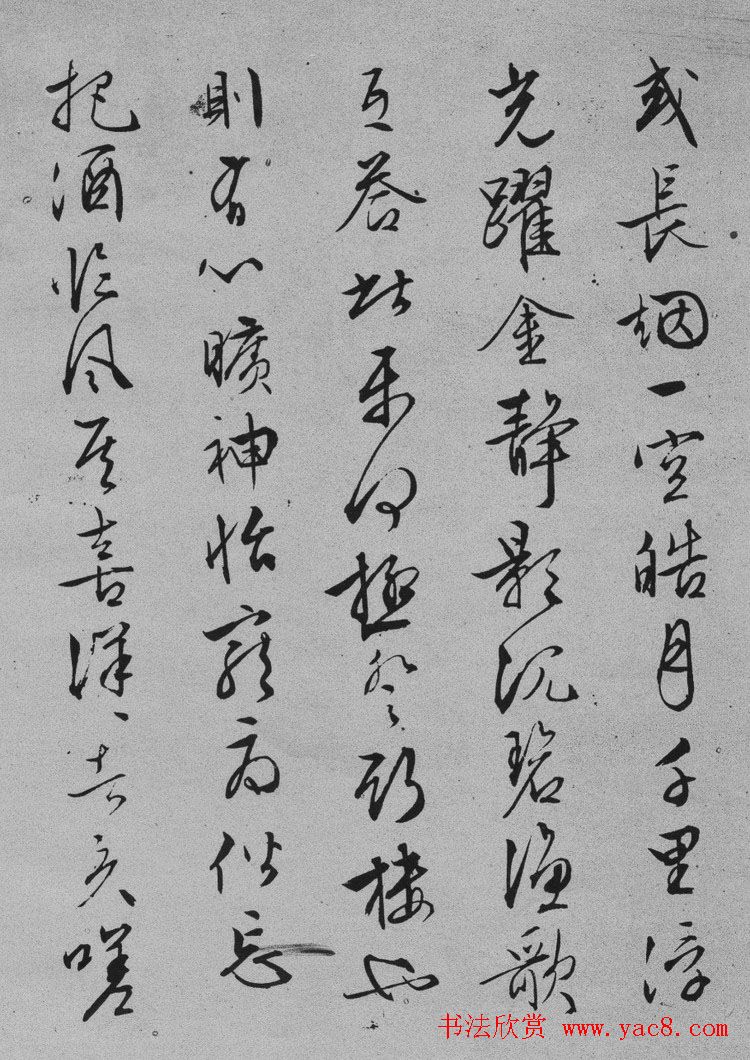 或長烟一空皓月千里浮
光躍金靜影沉碧漁歌
互荅此樂何極登斯樓也
則有心曠神怡寵辱偕忘
把酒臨風其喜洋〻者矣嗟
书法欣赏 www.yac8.com